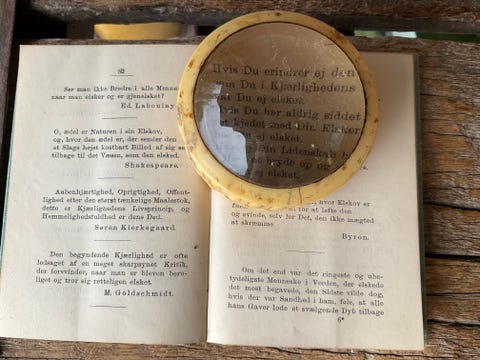 82
Ser man ikke Bedre i alle Mennesker,
naar man elsker og er gjenelsket?
Ed. Laboulay
O, ædel er Naturen i sin Elskov,
og, hvor den ædel er, der sender den
et Slags højst kostbart Billed af sig selv
tilbage til det Væsen, som den elsked.
Shakespeare.
Aabenhjærtighed, Oprigtighed, Offent-
lighed efter den størst tænkelige Maalestok,
dette er Kjærlighedens Livsprincip, og
Hemmelighedsfuldhed er dens Død.
Søren Kierkegaard.
Den begyndende Kjærlighed er ofte
ledsaget af en meget skarpsynet Kritik,
der forsvinder, naar man er bleven bero-
liget og tror sig retteligen elsket.
M. Goldschmidt.
Hvis Du erindrer ej den
som Du i Kjærlighedens
har Du ej elsket.
Hvis Du har aldrig siddet
kjedet med Din Elsker
har Du ej elsket.
Din Lidenskab
at bryde op og
for at løfte den
og svinde, selv for Det, den ikke mægted
at skræmme.
Byron.
Om det end var det ringeste og ube-
tydeligste Menneske i Verden, der elskede
det mest begavede, den Sidste vilde dog,
hvis der var Sandhed i ham, føle, at alle
hans Gaver lode et svælgende Dyb tilbage
6*